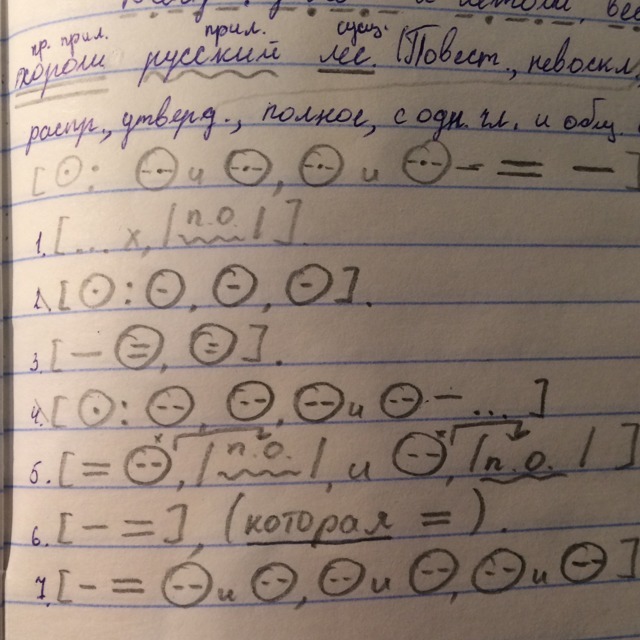 и
пр. прил. прил. сущ.
хорош русский лес. (Повест., невоскл,
распр., утверд., полное, с одн. чл. и обращ
[⊙: и , и - = -]
1. [... х, |п.о.|].
2. [⊙: ⊖, ⊖, ⊖].
3. [- ⊜, ⊜].
4. [⊙: , , и - ...]
5. [= х, |п.о.|, и х, |п.о.|]
6. [- =], (которая =).
7. [- = и , и , и ]